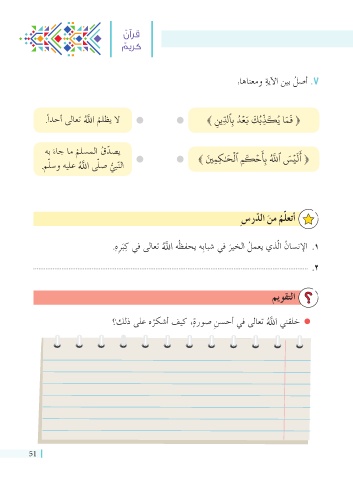 قرآن
كريم
٧. أصلُ بين الآية ومعناها.
﴿ فَمَا يُكَذِّبُكَ بَعْدُ بِٱلدِّينِ ﴾
لا يظلمُ اللهُ تعالى أحداً.
﴿ أَلَيْسَ ٱللَّهُ بِأَحْكَمِ ٱلْحَٰكِمِينَ ﴾
يصدّقُ المسلمُ ما جاءَ به
النّبيُّ صلّى اللهُ عليه وسلّم.
أتعلّمُ منَ الدّرسِ
١. الإنسانُ الّذي يعملُ الخيرَ في شبابه يحفظُه اللهُ تعالى في كِبَرِه.
٢.
التقويم
خلقني اللهُ تعالى في أحسنِ صورةٍ، كيف أشكرُه على ذلك؟
51